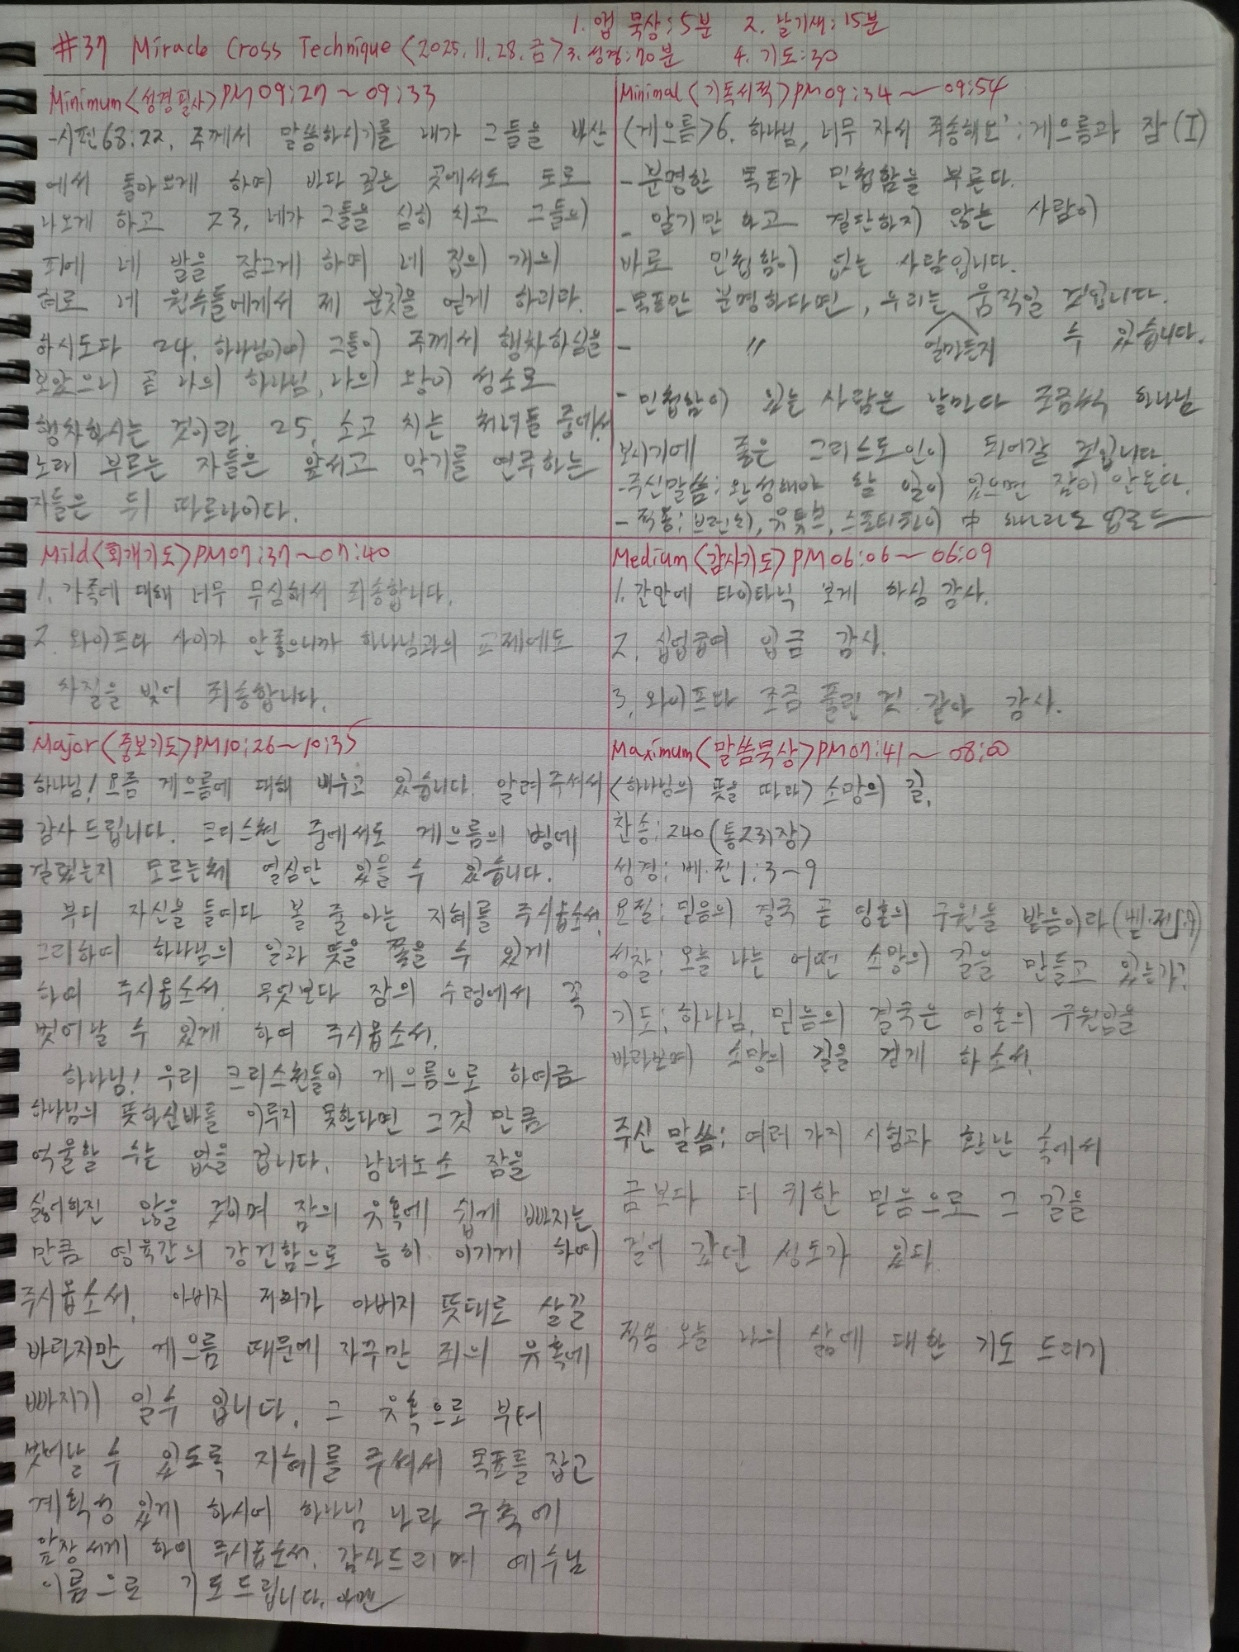 #37 Miracle Cross Technique <2025.11.28.금>
1. 앱 묵상:5분 2. 날기새:15분
3. 성경:70분 4. 기도:30
Minimum<성경필사>PM09:27~09:33
-시편68:22. 주께서 말씀하시기를 내가 그들을 바산
에서 돌아오게 하며 바다 깊은 곳에서도 도로
나오게 하고 23. 네가 그들을 심히 치고 그들의
피에 네 발을 잠그게 하며 네 집의 개의
혀로 네 원수들에게서 제 분깃을 얻게 하리라
하시도다 24. 하나님이여 그들이 주께서 행차하심을
보았으니 곧 나의 하나님, 나의 왕이 성소로
행차하시는 것이라 25. 소고 치는 처녀들 중에서
노래 부르는 자들은 앞서고 악기를 연주하는
자들은 뒤 따르나이다.
Minimal<기독서적>PM09:34~09:54
<게으름>6. 하나님, 너무 자서 죄송해요': 게으름과 잠(I)
-분명한 목표가 민첩함을 부른다.
- 알기만 하고 결단하지 않는 사람이
바로 민첩함이 없는 사람입니다.
-목표만 분명하다면, 우리는 움직일 것입니다.
- 〃 얼마든지 수 있습니다.
- 민첩함이 있는 사람은 날마다 조금씩 하나님
보시기에 좋은 그리스도인이 되어갈 것입니다.
-주신말씀: 완성해야 할 일이 있으면 잠이 안 온다.
-적용: 브런치, 유튜브, 스포티파이 中 하나라도 업로드
Mild<회개기도>PM07:37~07:40
1. 가족에 대해 너무 무심해서 죄송합니다.
2. 와이프와 사이가 안좋으니까 하나님과의 교제에도
차질을 빚어 죄송합니다.
Medium<감사기도>PM06:06~06:09
1. 간만에 타이타닉 보게 하심 감사.
2. 실업급여 입금 감사.
3. 와이프와 조금 풀린 것 같아 감사.
Major<중보기도>PM10:26~10:35
하나님! 요즘 게으름에 대해 배우고 있습니다. 알려주셔서
감사드립니다. 크리스천 중에서도 게으름의 병에
걸렸는지 모르는체 열심만 있을 수 있습니다.
부디 자신을 들여다 볼 줄 아는 지혜를 주시옵소서.
그리하여 하나님의 일과 뜻을 쫓을 수 있게
하여 주시옵소서. 무엇보다 잠의 수렁에서 꼭
벗어날 수 있게 하여 주시옵소서.
하나님! 우리 크리스천들이 게으름으로 하여금
하나님의 뜻하신바를 이루지 못한다면 그것 만큼
억울할 수는 없을 겁니다. 남녀노소 잠을
싫어하진 않을 것이며 잠의 유혹에 쉽게 빠지는
만큼 영육간의 강건함으로 능히 이기게 하여
주시옵소서. 아버지 저희가 아버지 뜻대로 살길
바라지만 게으름 때문에 자꾸만 죄의 유혹에
빠지기 일수 입니다. 그 유혹으로 부터
벗어날 수 있도록 지혜를 주셔서 목표를 잡고
계획성 있게 하시어 하나님 나라 구축에
앞장서게 하여 주시옵소서. 감사드리며 예수님
이름으로 기도드립니다. 아멘
Maximum<말씀묵상>PM07:41~08:00
<하나님의 뜻을 따라> 소망의 길.
찬송:240(통231장)
성경:베.전1:3~9
요절: 믿음의 결국 곧 영혼의 구원을 받음이라(벧.전1:9)
성찰: 오늘 나는 어떤 소망의 길을 만들고 있는가?
기도: 하나님, 믿음의 결국은 영혼의 구원임을
바라보며 소망의 길을 걷게 하소서.
주신 말씀: 여러 가지 시험과 환난 속에서
금보다 더 귀한 믿음으로 그 길을
걸어 갔던 성도가 있다
적용 오늘 나의 삶에 대한 기도 드리기